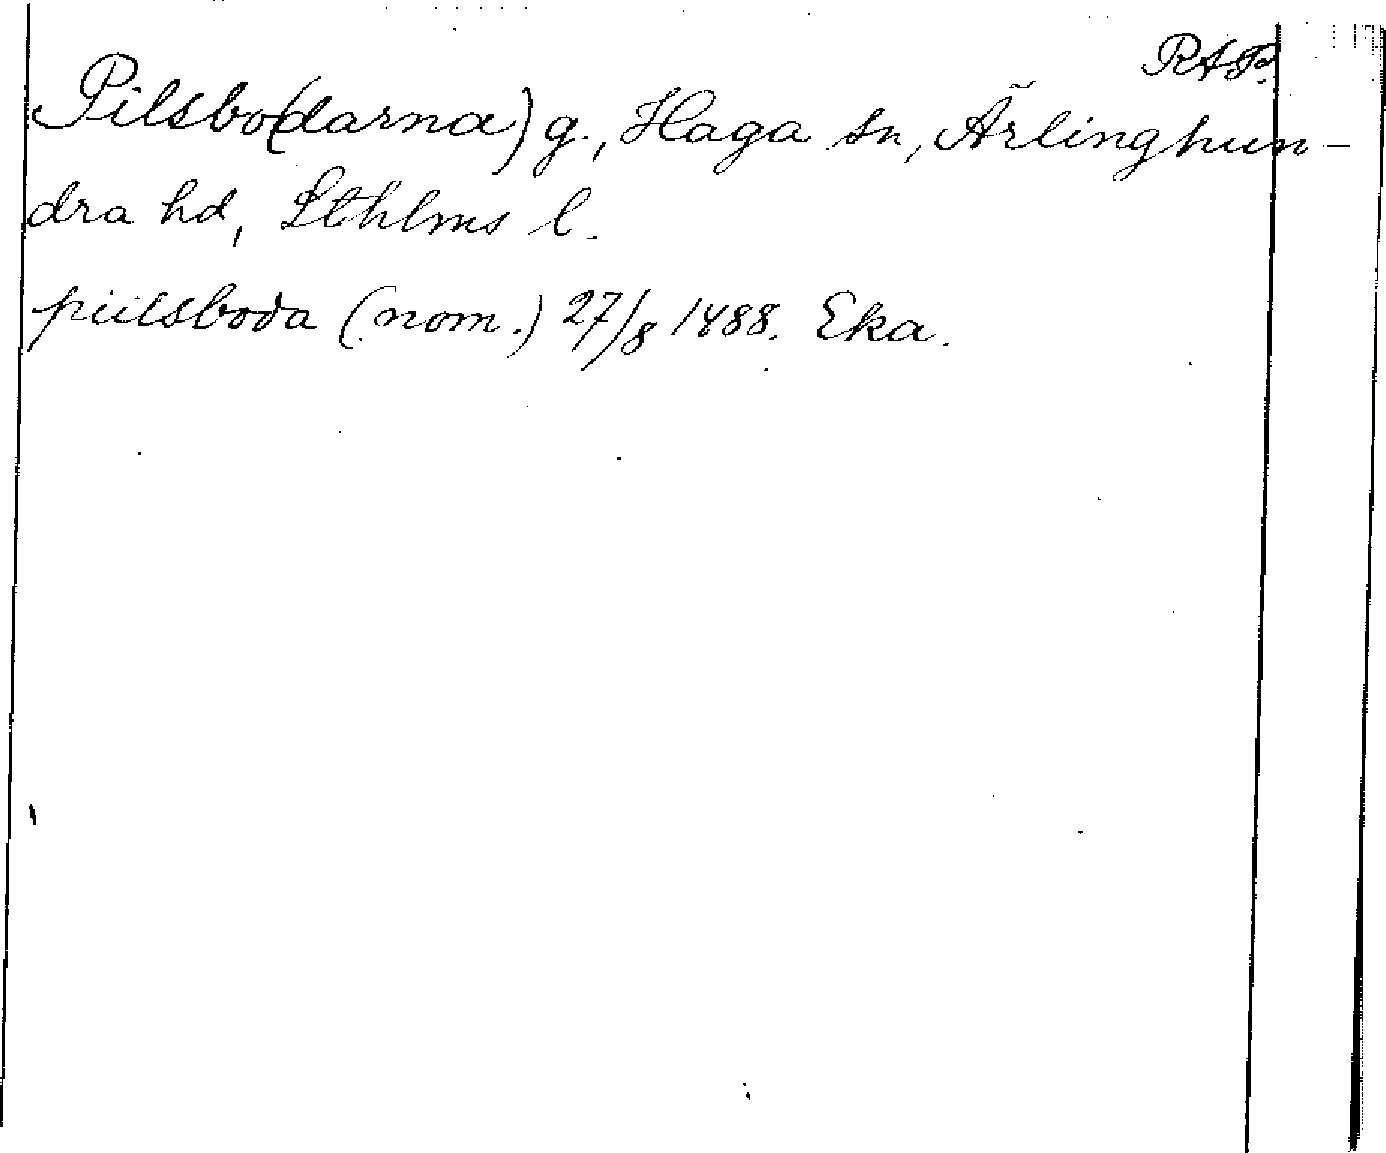 RAP.
Pilsbo(darna) g., Haga sn, Ärlinghun-
dra hd, Sthlms l.
piilsboda (nom.) 27/8 1488. Eka.